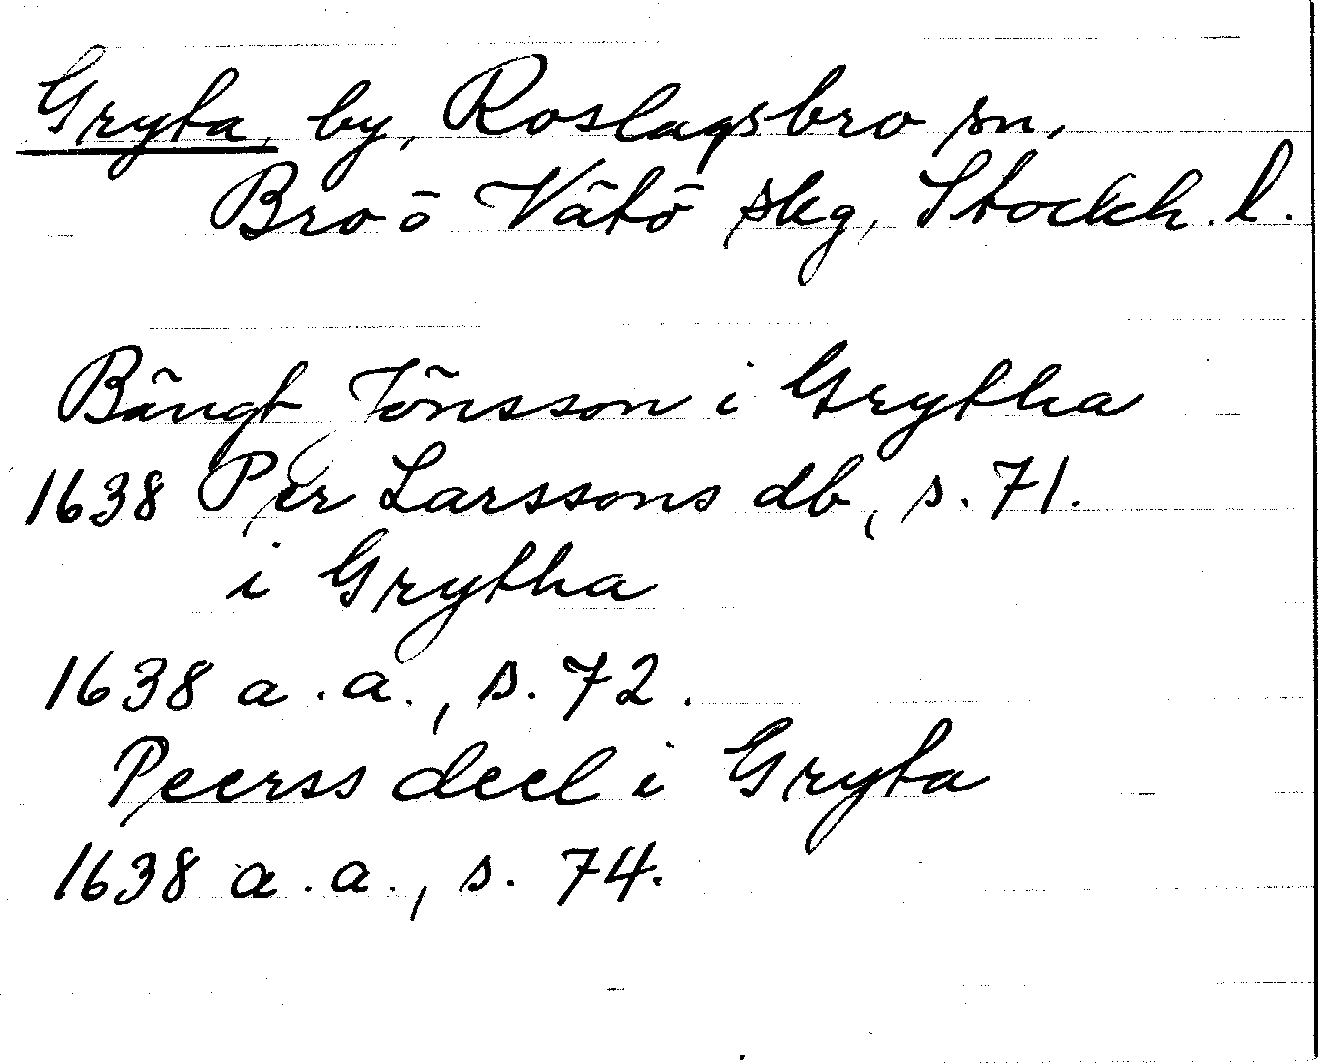 Gryta, by, Roslagsbro sn,
Bro o Vätö skg, Stockh. l.
Bängt Jönsson i Grytha
1638 Per Larssons db, s. 71.
i Grytha
1638 a.a., s. 72.
Peerss deel i Gryta
1638 a.a., s. 74.